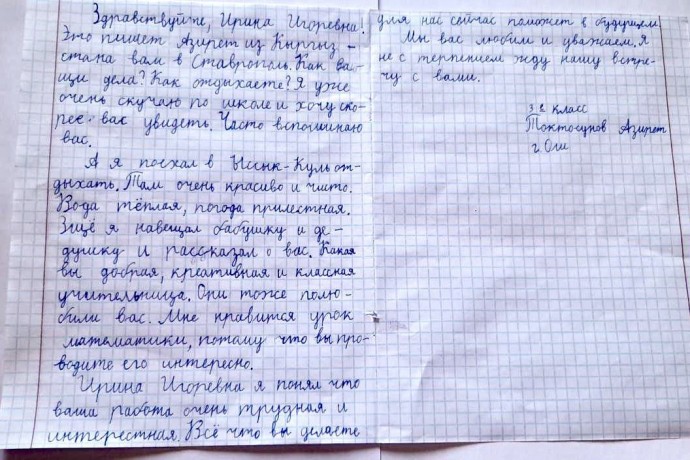 Здравствуйте, Ирина Игоревна!
Это пишет Азирет из Кыргыз-
стана вам в Ставрополь. Как ва-
ши дела? Как отдыхаете? Я уже
очень скучаю по школе и хочу ско-
рее вас увидеть. Часто вспоминаю
вас.
А я поехал в Ысык-Куль от-
дыхать. Там очень красиво и чисто.
Вода тёплая, погода прилестная.
Ещё я навещал бабушку и де-
душку и рассказал о вас. Какая
вы добрая, креативная и классная
учительница. Они тоже полю-
били вас. Мне нравится урок
математики, потому что вы про-
водите его интересно.
Ирина Игоревна я понял что
ваша работа очень трудная и
интерестная. Всё что вы делаете
для нас сейчас поможет в будущем
Мы вас любим и уважаем. Я
не с терпением жду нашу встре-
чу с вами.
3 г класс
Токтосунов Азирет
г. Ош